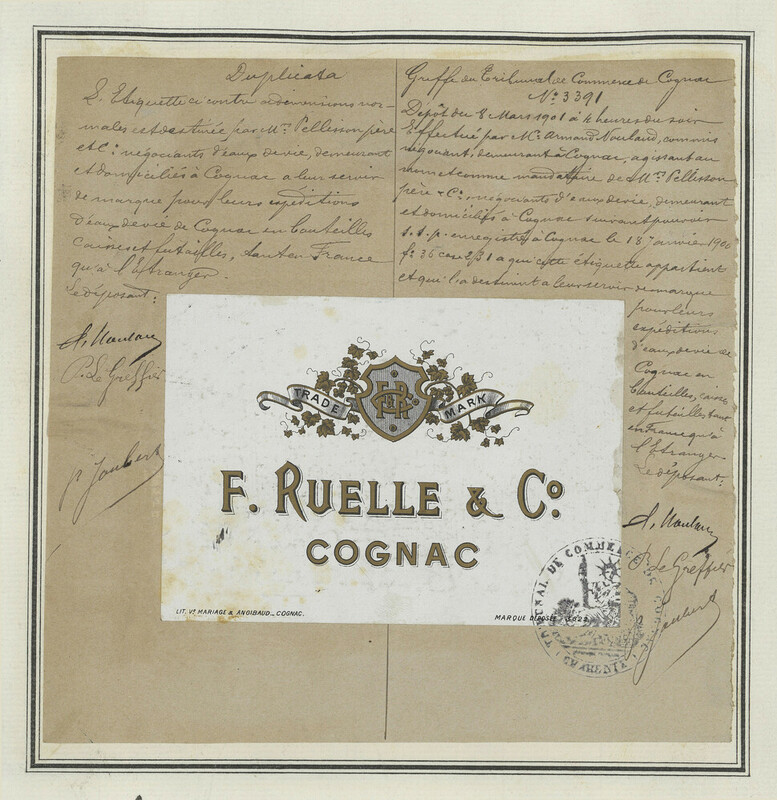 Duplicata
L'Etiquette ci contre a dimensions nor-
males est destinée par Mrs Pellisson père
et Cie négociants d'eaux de vie, demeurant
et domiciliés à Cognac a leur servir
de marque pour leurs expéditions
d'eaux de vie de Cognac en bouteilles
caisses et futailles, tant en France
qu'à l'Etranger.
Le déposant:
P. Le Greffier
p Joubert
Greffe du Tribunal de Commerce de Cognac
No 3391
Dépôt du 8 Mars 1901 à 4 heures du soir
Effectué par Mr Armand Noulaud, commis
négociant, demeurant à Cognac, agissant au
nom et comme mandataire de Mrs Pellisson
père & Cie négociants d'eaux de vie, demeurant
et domiciliés à Cognac suivant pouvoir
s.s.p. enregistré à Cognac le 18 janvier 1900
fo 36 case 2131 a qui cette étiquette appartient
et qui la destinent a leur servir de marque
pour leurs
expéditions
d'eaux de vie de
Cognac en
bouteilles, caisses
et futailles tant
en France qu'à
l'Etranger
Le déposant:
P. Le Greffier
Joubert
TRADE MARK
F. RUELLE & Co
COGNAC
LIT. Ve MARIAGE & ANGIBAUD _ COGNAC.
MARQUE DÉPOSÉE
TRIBUNAL DE COMMERCE DE COGNAC
(CHARENTE)